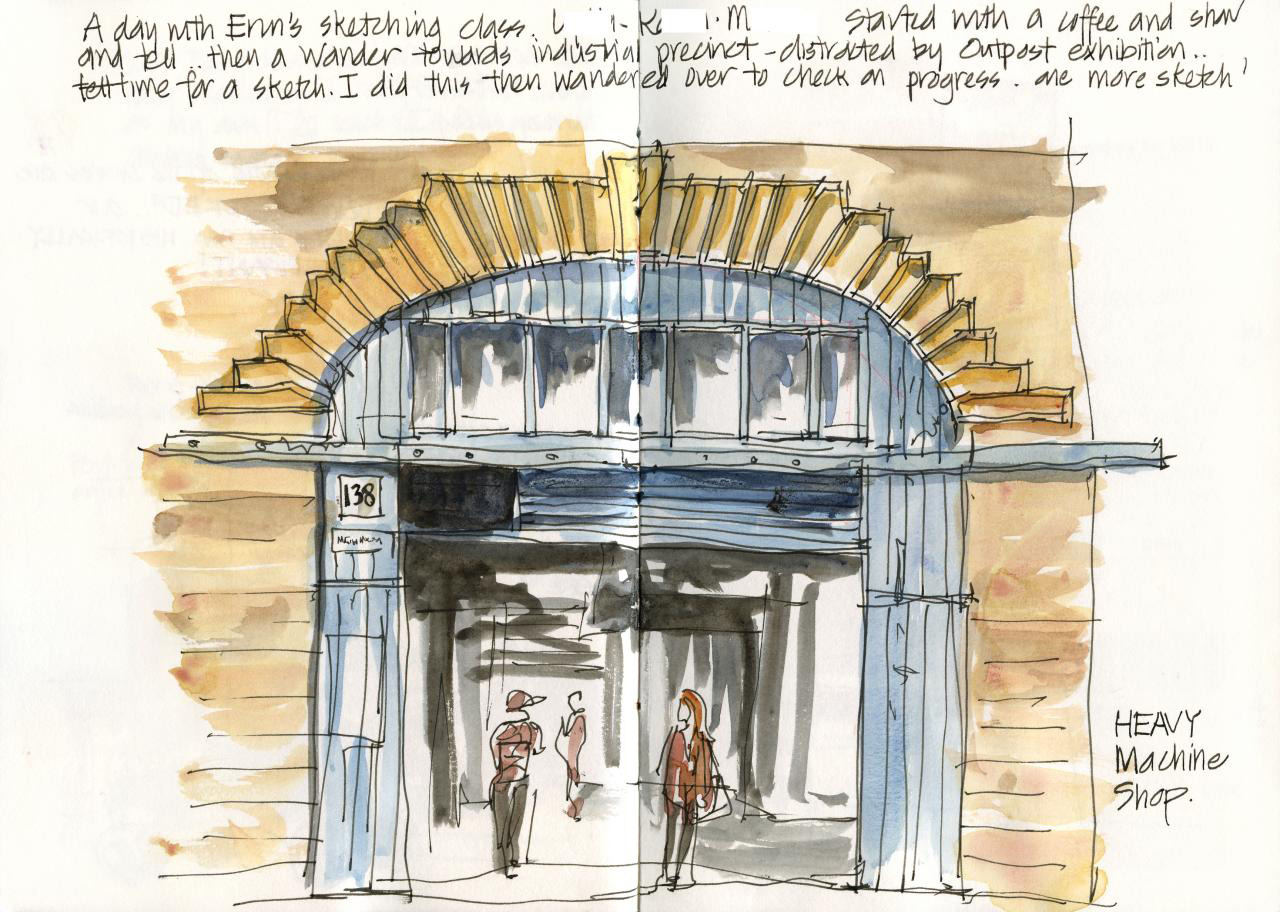 A day with Erin's sketching class. started with a coffee and show
and tell .. then a wander towards industrial precinct - distracted by Outpost exhibition..
time for a sketch. I did this then wandered over to check on progress. one more sketch!
138
HEAVY
Machine
Shop.